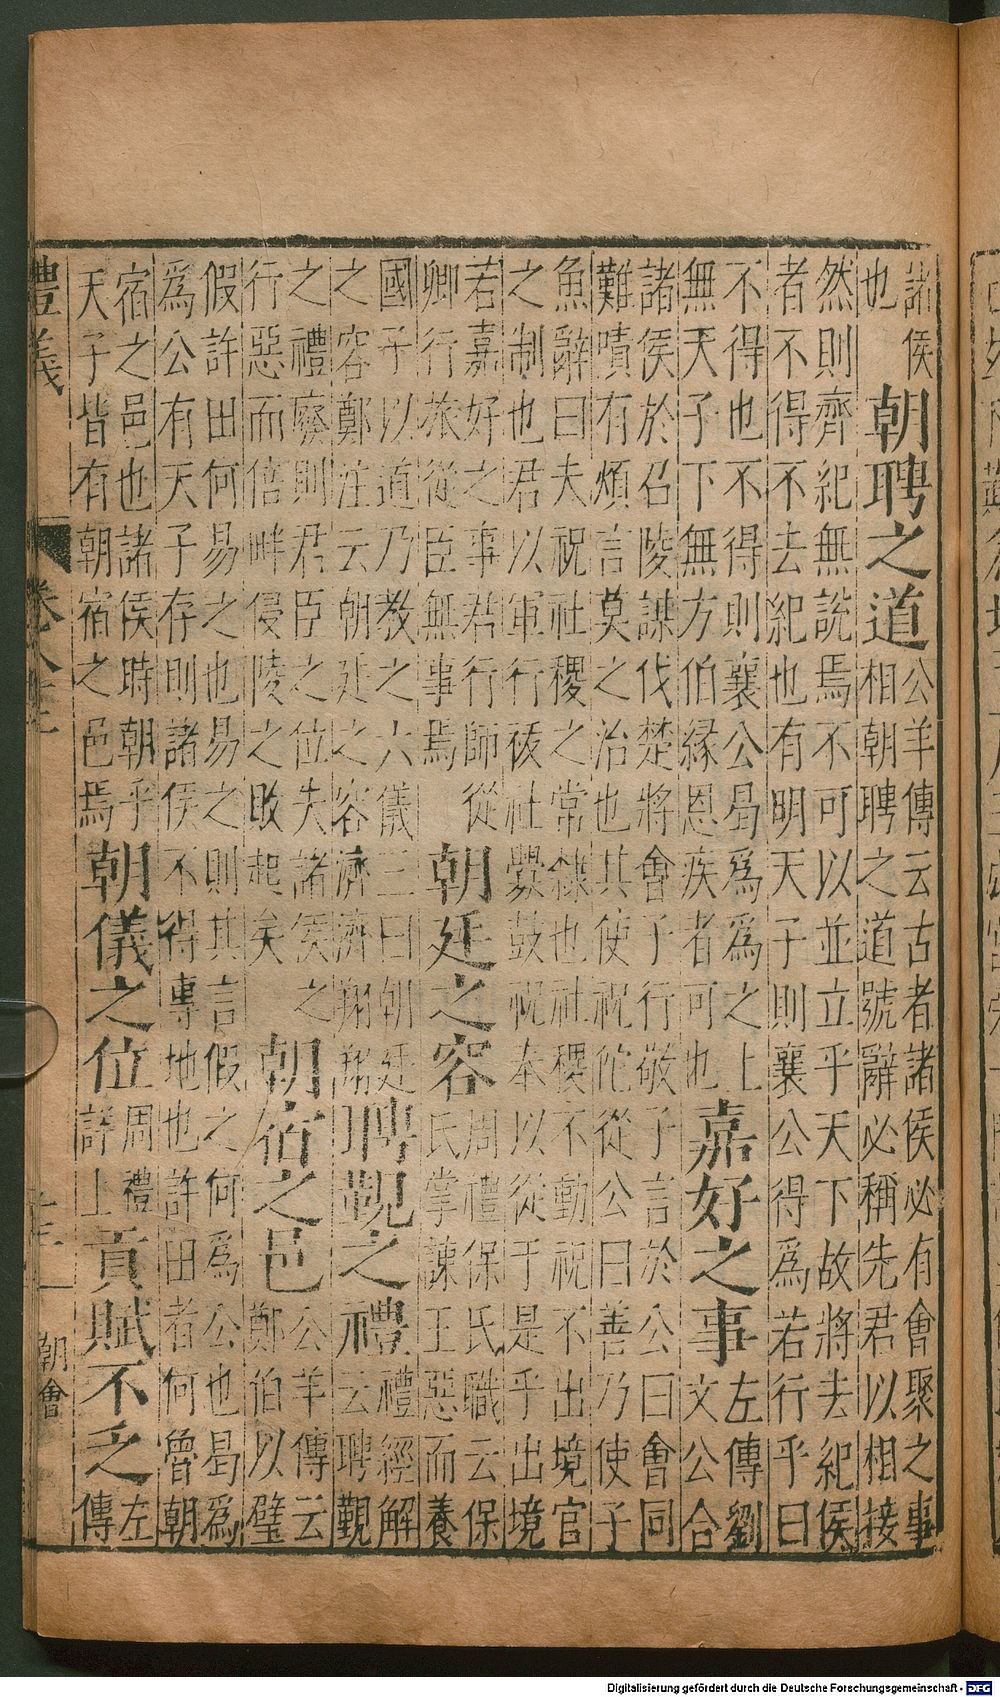 諸侯
也
朝聘之道
公羊傳云古者諸侯必有會聚之事
相朝聘之道號辭必稱先君以相接
然則齊紀無説焉不可以並立乎天下故將去紀侯
者不得不去紀也有明天子則襄公得爲若行乎曰
不得也不得則襄公曷爲爲之上
無天子下無方伯縁恩疾者可也
嘉好之事
左傳劉
文公合
諸侯於召陵謀伐楚將會子行敬子言於公曰會同
難嘖有煩言莫之治也其使祝佗從公曰善乃使子
魚辭曰夫祝社稷之常隸也社稷不動祝不出境官
之制也君以軍行祓社釁鼓祝奉以從于是乎出境
若嘉好之事君行師從
卿行旅從臣無事焉
朝廷之容
周禮保氏職云保
氏掌諫王惡而養
國子以道乃教之六儀三曰朝廷
之容鄭注云朝廷之容濟濟翔翔
聘覲之禮
禮經解
云聘覲
之禮廢則君臣之位失諸侯之
行惡而倍畔侵陵之敗起矣
朝宿之邑
公羊傳云
鄭伯以璧
假許田何易之也易之則其言假之何爲公也曷爲
爲公有天子存則諸侯不得專地也許田者何魯朝
宿之邑也諸侯時朝乎
天子皆有朝宿之邑焉
朝儀之位
周禮
詳上
貢賦不乏
左
傳
禮義
朝會
Digitalisierung gefördert durch die Deutsche Forschungsgemeinschaft - DFG